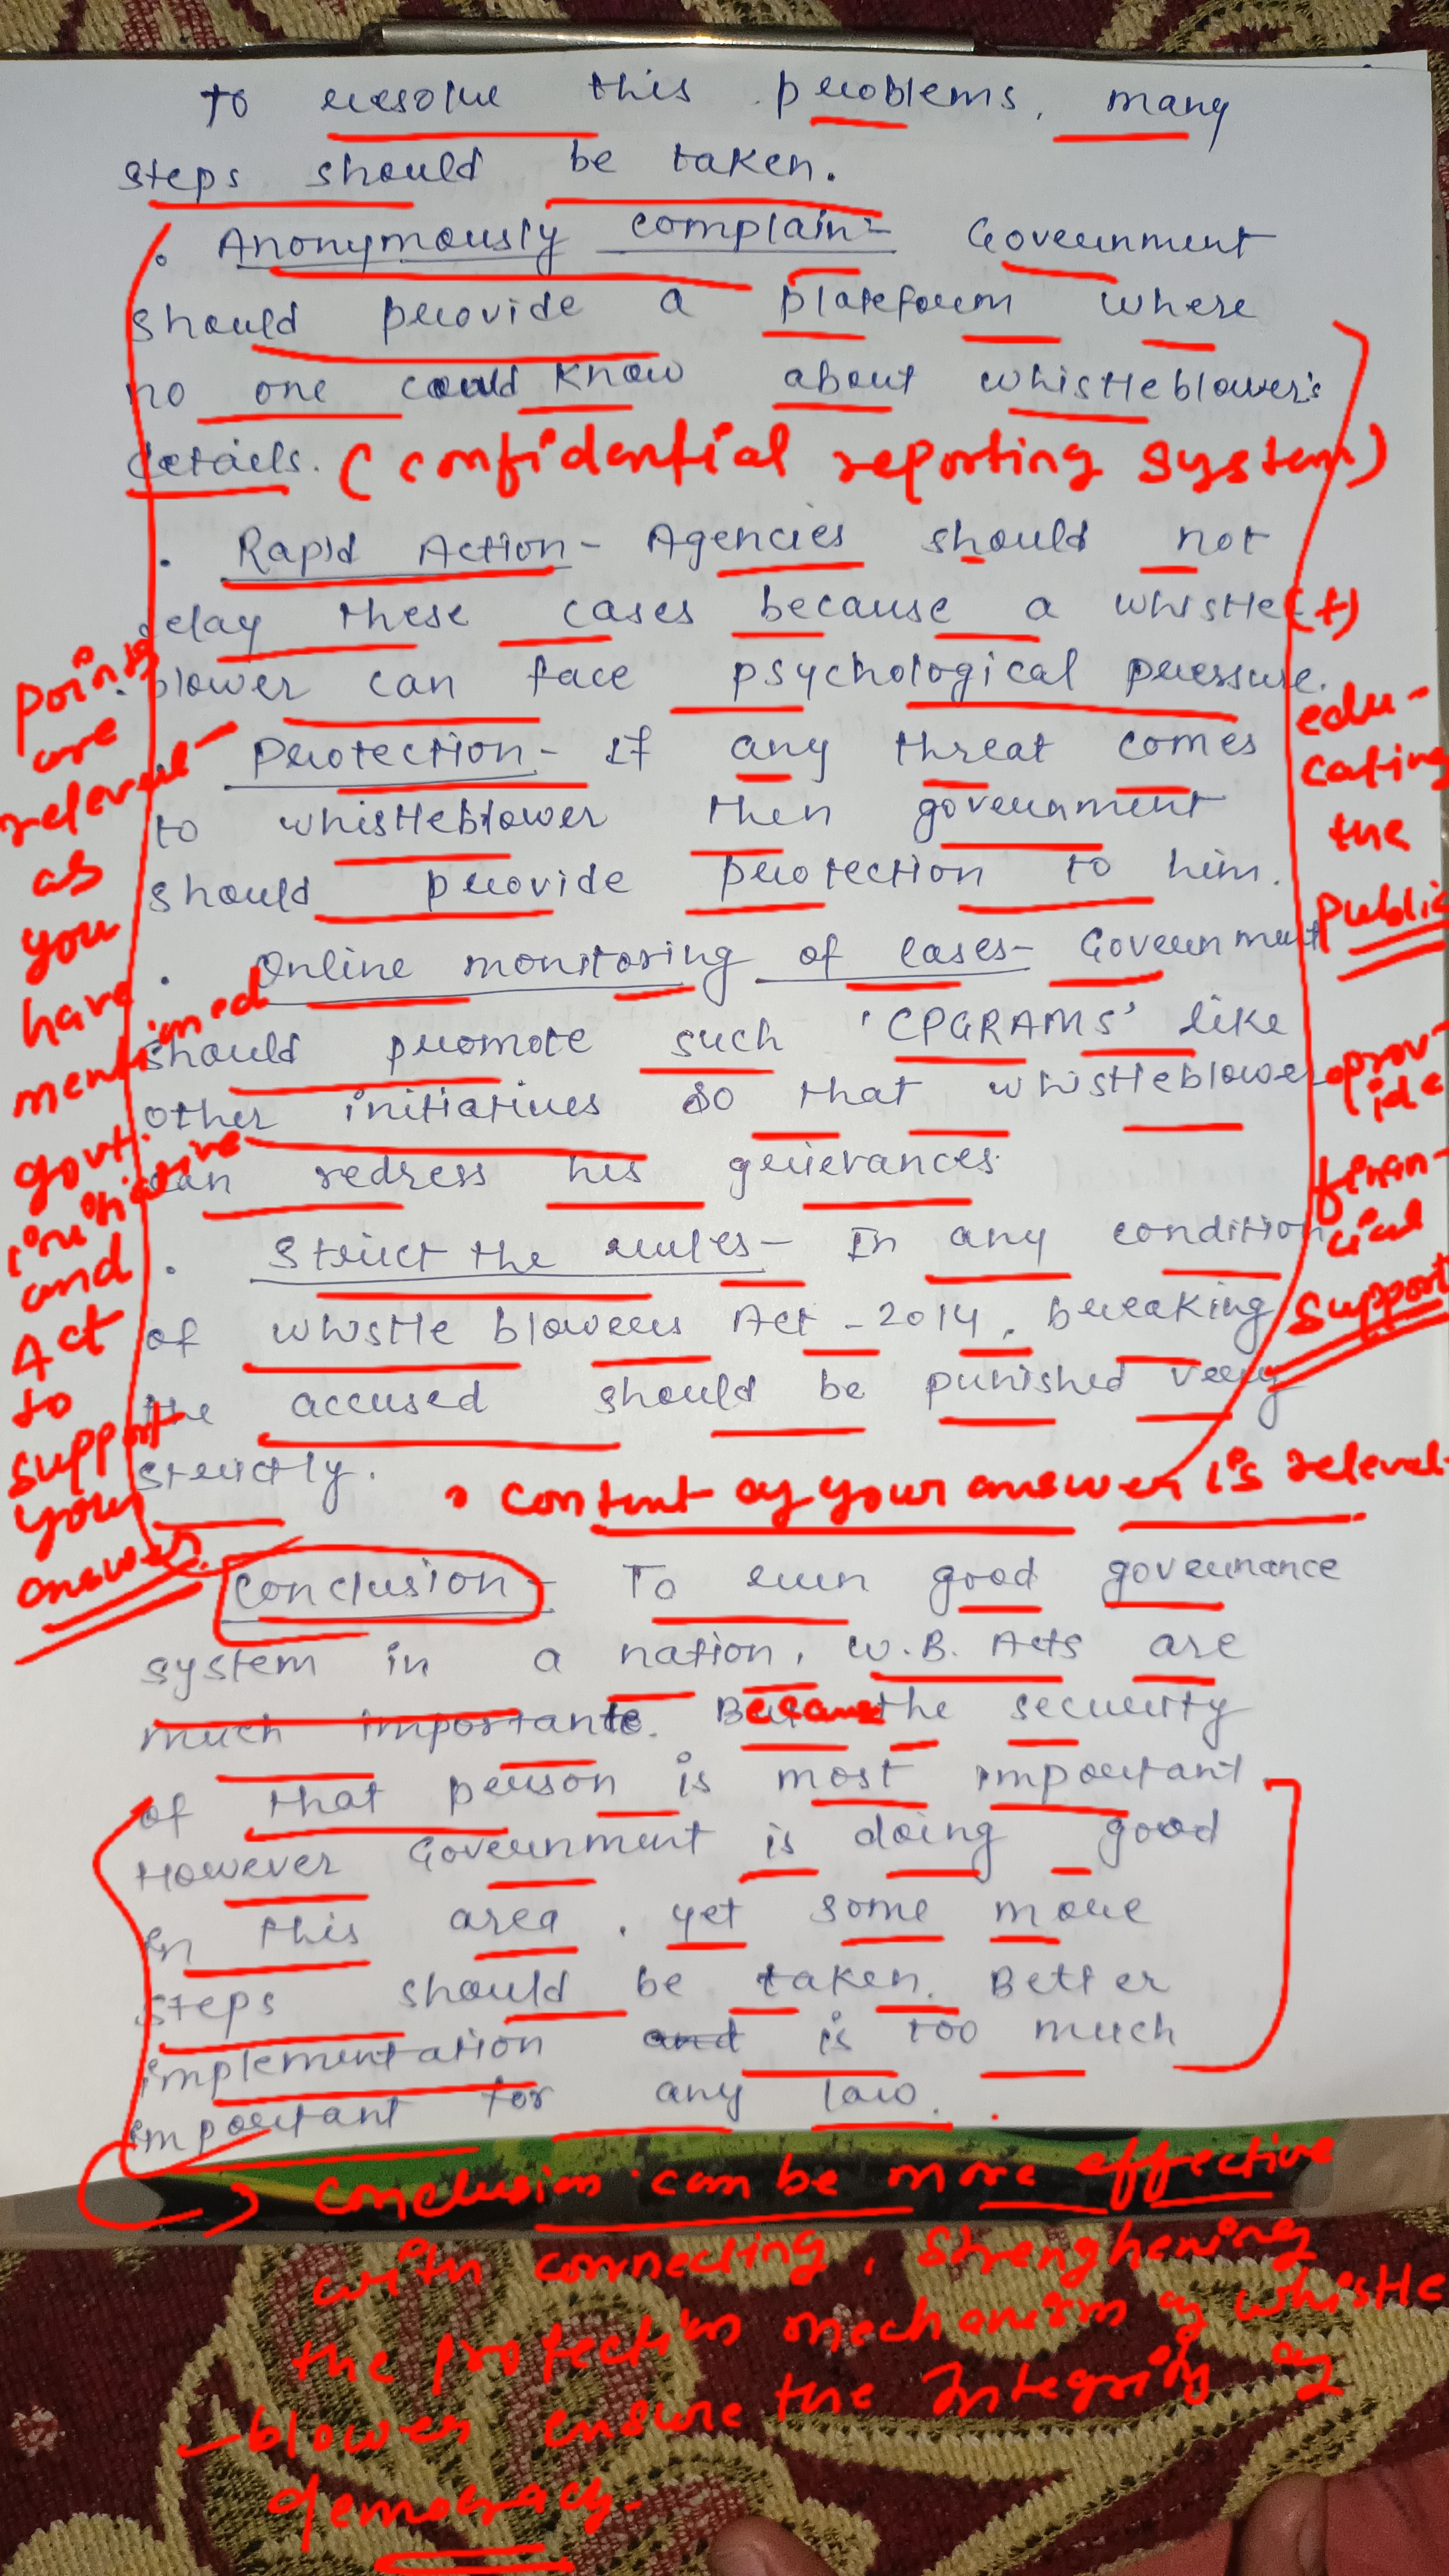 To resolve this problems, many
steps should be taken.
• Anonymously complain- Government
should provide a plateform where
no one could know about whistleblower's
details. (confidential reporting system)
• Rapid Action- Agencies should not
delay these cases because a whistle
blower can face psychological pressure.
• Protection- If any threat comes
to whistleblower then government
should provide protection to him.
• Online monitoring of cases- Government
should promote such 'CPGRAMS' like
other initiatives so that whistleblower
can redress his grievances.
• Strict the rules- In any condition
of whistle blowers Act-2014, breaking
the accused should be punished very
strictly.
• content of your answer is relevant
Conclusion- To run good governance
system in a nation, W.B. Acts are
much important. Because the security
of that person is most important.
However Government is doing good
in this area, yet some more
steps should be taken. Better
implementation and is too much
important for any law.
→ conclusion can be more effective
with connecting, strenghening
the protection mechanism of whistle
-blower ensure the Integrity of
democracy.
points
are
relevant
as
you
have
mentioned
govt.
initiative
and
Act
to
support
your
answer
(+)
edu-
cating
the
public
prov-
ide
finan-
cial
support